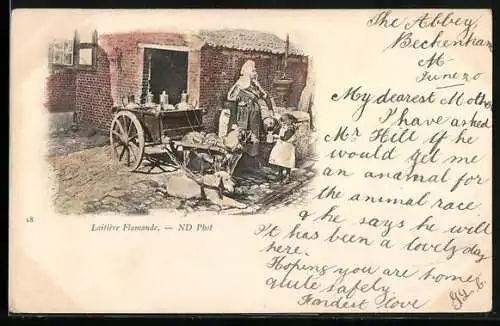 The Abbey,
Beckenham
June 20
My dearest Mother
I have asked
Mr. Hill if he
would get me
an anamal for
the animal race
& he says he will
It has been a lovely day
here.
Hoping you are home
quite safely
Fondest love
G.L.C.
18
Laitière Flamande. — ND Phot